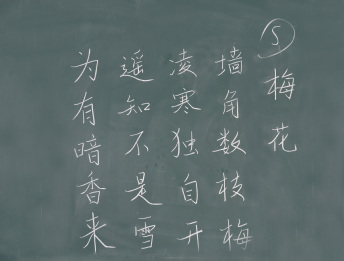 ⑤梅花
墙角数枝梅
凌寒独自开
遥知不是雪
为有暗香来